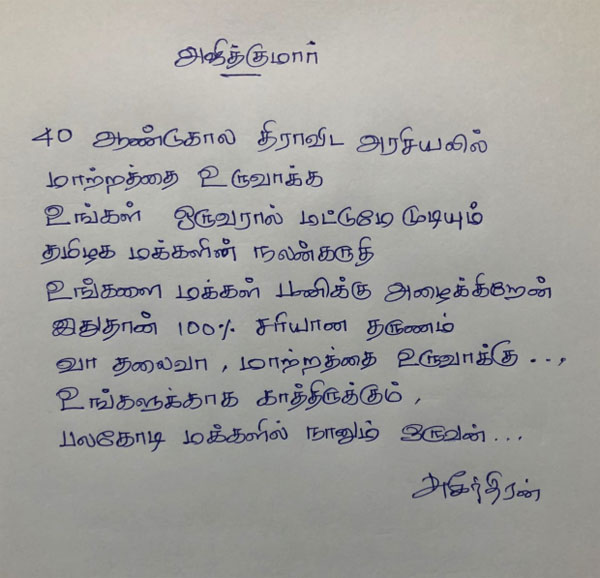 அஜித்குமார்
40 ஆண்டுகால திராவிட அரசியலில்
மாற்றத்தை உருவாக்க
உங்கள் ஒருவரால் மட்டுமே முடியும்
தமிழக மக்களின் நலன்கருதி
உங்களை மக்கள் பணிக்கு அழைக்கிறேன்
இதுதான் 100% சரியான தருணம்
வா தலைவா, மாற்றத்தை உருவாக்கு...,
உங்களுக்காக காத்திருக்கும்,
பலகோடி மக்களில் நானும் ஒருவன்...
சுசீந்திரன்